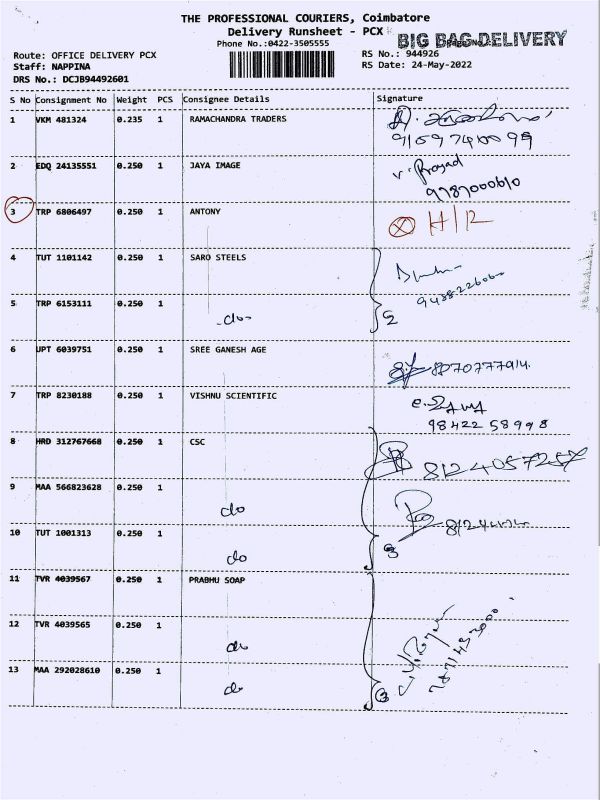 THE PROFESSIONAL COURIERS, Coimbatore
Delivery Runsheet - PCX
BIG BAG DELIVERY
Phone No.:0422-3505555
Route: OFFICE DELIVERY PCX
RS No.: 944926
Staff: NAPPINA
RS Date: 24-May-2022
DRS No.: DCJB94492601
S No Consignment No Weight PCS Consignee Details Signature
1 VKM 481324 0.235 1 RAMACHANDRA TRADERS
2 EDQ 24135551 0.250 1 JAYA IMAGE
v. Prasad
9787000610
3 TRP 6806497 0.250 1 ANTONY
4 TUT 1101142 0.250 1 SARO STEELS
5 TRP 6153111 0.250 1 -do- 2
6 UPT 6039751 0.250 1 SREE GANESH AGE
8070777914
7 TRP 8230188 0.250 1 VISHNU SCIENTIFIC
98422 58998
8 HRD 312767668 0.250 1 CSC
8124057257
9 MAA 566823628 0.250 1 do
10 TUT 1001313 0.250 1 do 3
11 TVR 4039567 0.250 1 PRABHU SOAP
12 TVR 4039565 0.250 1 do
13 MAA 292028610 0.250 1 do 3